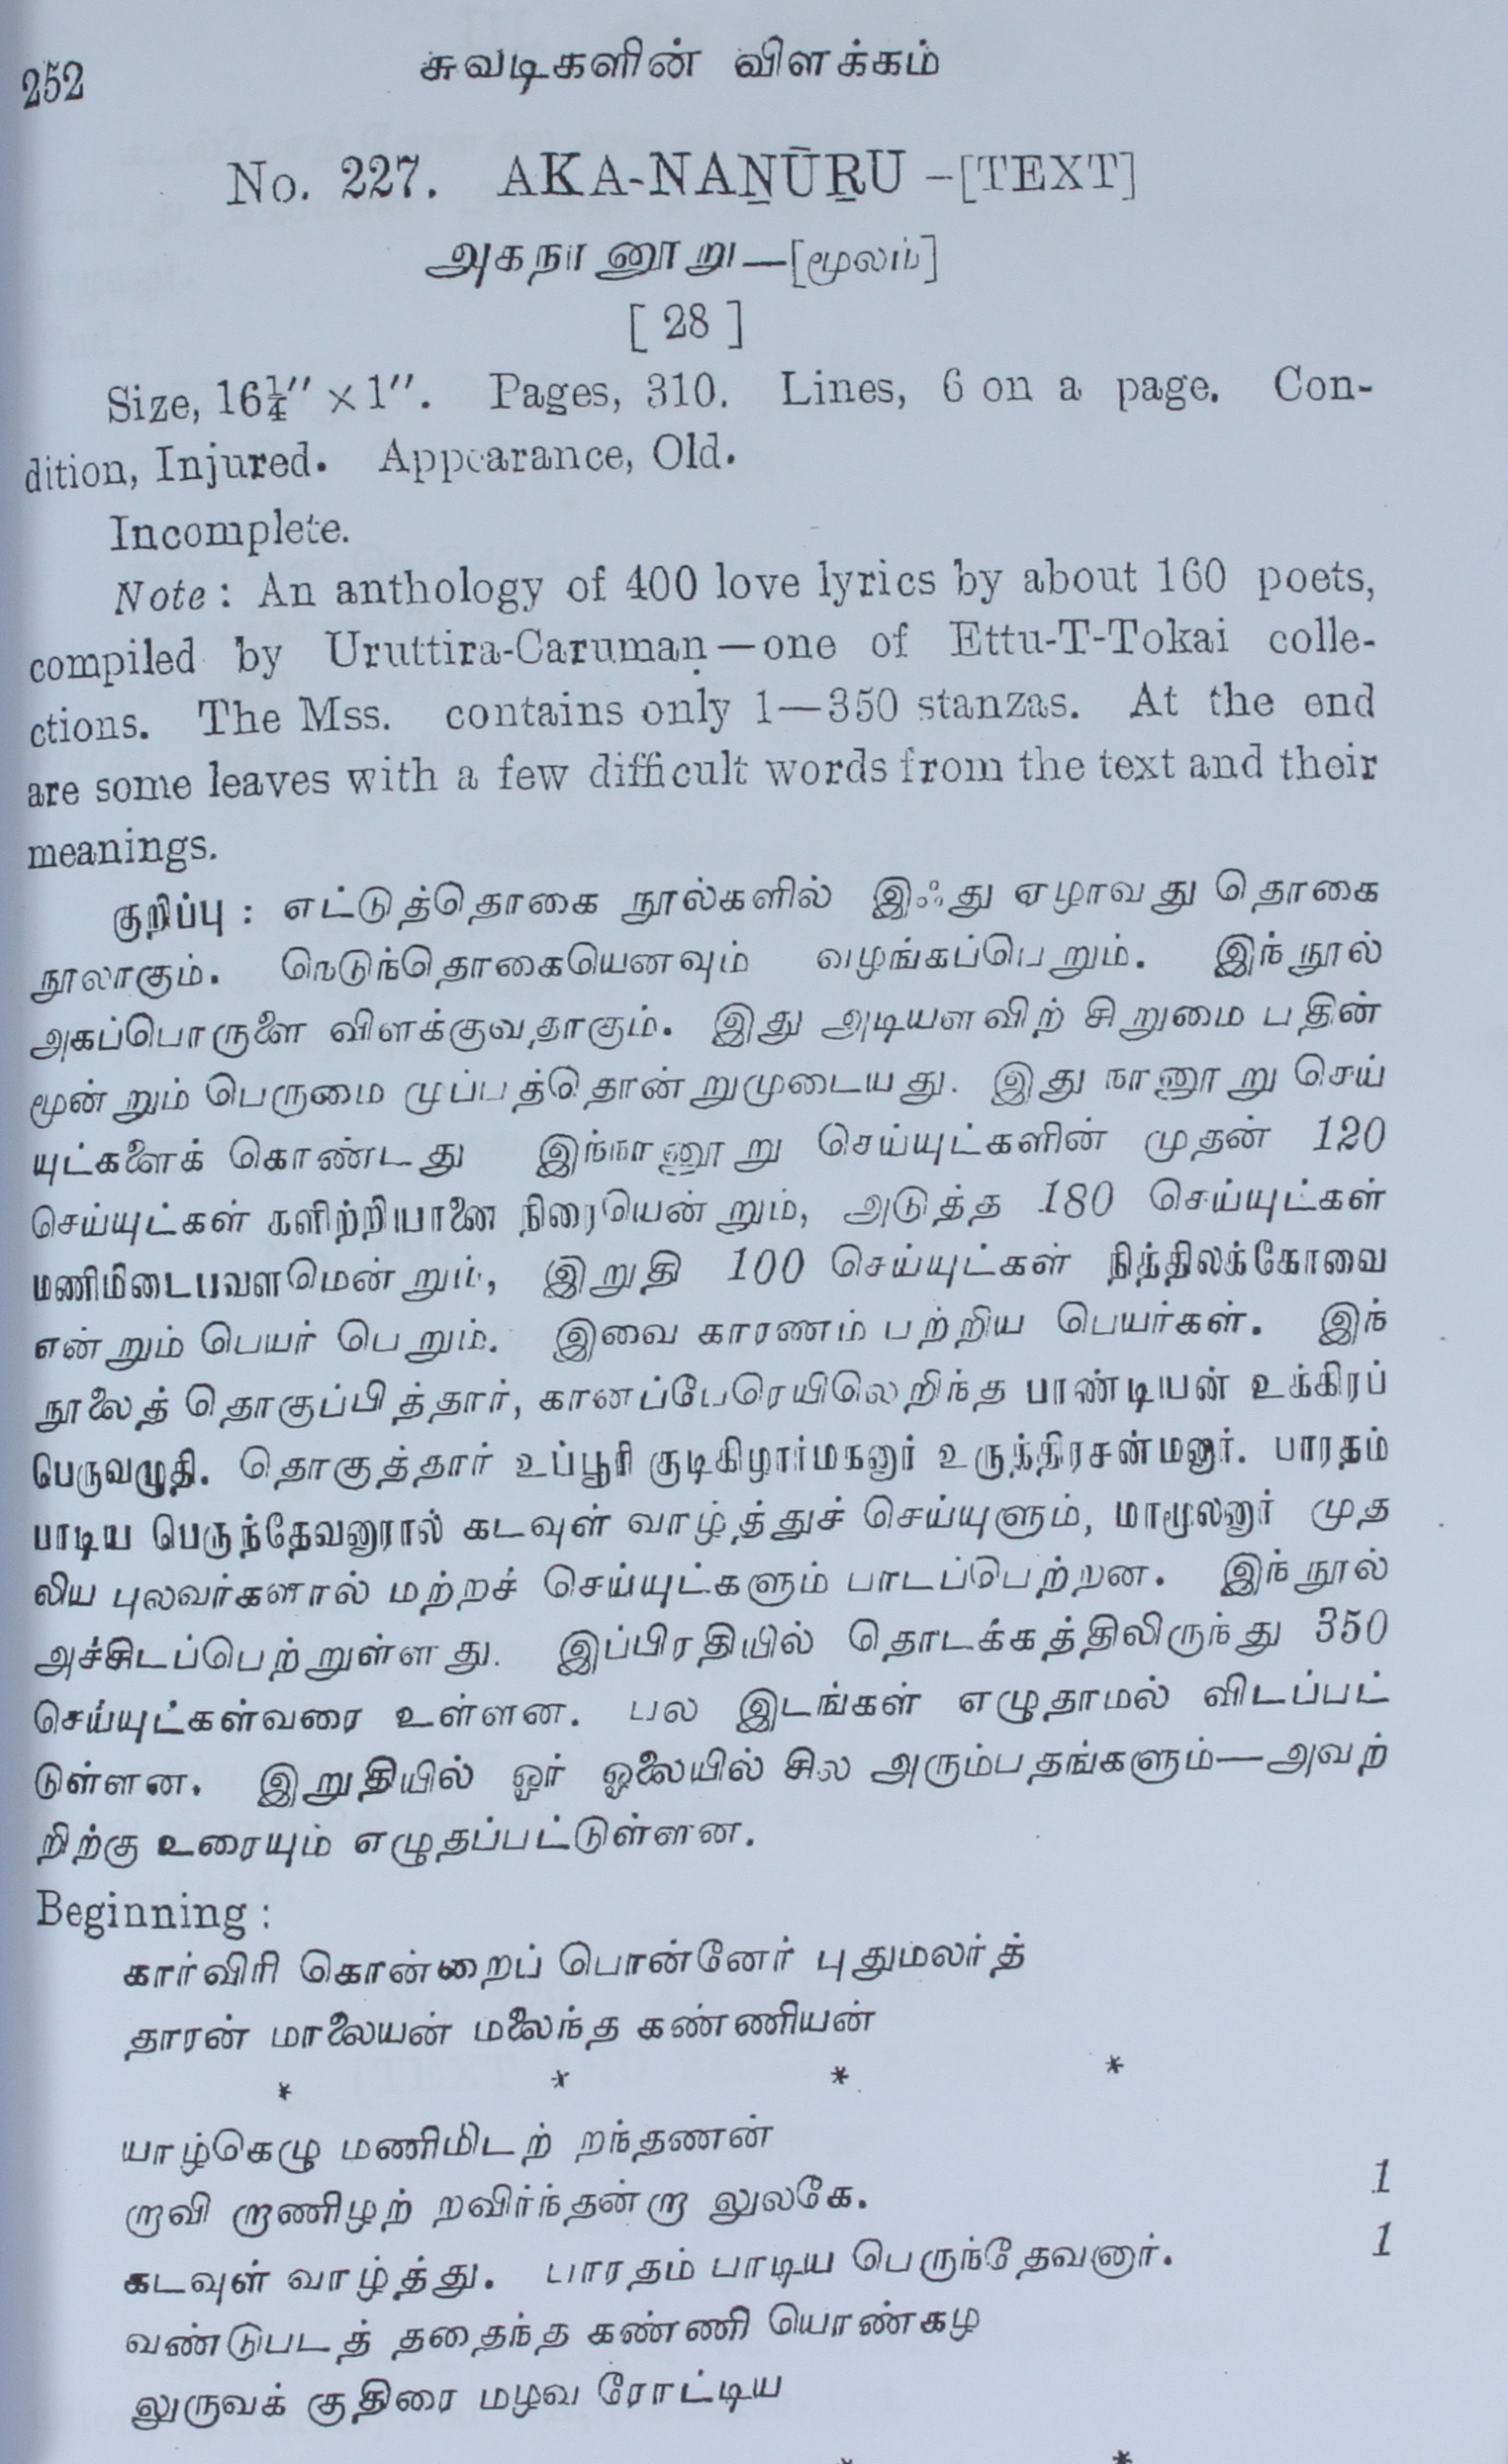 252 சுவடிகளின் விளக்கம்
No. 227. AKA-NAṈŪṞU –[TEXT]
அகநானூறு—[மூலம்]
[ 28 ]
Size, 16¼″ × 1″. Pages, 310. Lines, 6 on a page. Con-
dition, Injured. Appearance, Old.
Incomplete.
Note : An anthology of 400 love lyrics by about 160 poets,
compiled by Uruttira-Carumaṇ—one of Ettu-T-Tokai colle-
ctions. The Mss. contains only 1—350 stanzas. At the end
are some leaves with a few difficult words from the text and their
meanings.
குறிப்பு : எட்டுத்தொகை நூல்களில் இஃது ஏழாவது தொகை
நூலாகும். நெடுந்தொகையெனவும் வழங்கப்பெறும். இந்நூல்
அகப்பொருளை விளக்குவதாகும். இது அடியளவிற் சிறுமை பதின்
மூன்றும் பெருமை முப்பத்தொன்றுமுடையது. இது நானூறு செய்
யுட்களைக் கொண்டது இந்நானூறு செய்யுட்களின் முதன் 120
செய்யுட்கள் களிற்றியானை நிரையென்றும், அடுத்த 180 செய்யுட்கள்
மணிமிடைபவளமென்றும், இறுதி 100 செய்யுட்கள் நித்திலக்கோவை
என்றும் பெயர் பெறும். இவை காரணம் பற்றிய பெயர்கள். இந்
நூலைத் தொகுப்பித்தார், கானப்பேரெயிலெறிந்த பாண்டியன் உக்கிரப்
பெருவழுதி. தொகுத்தார் உப்பூரி குடிகிழார்மகனார் உருந்திரசன்மனார். பாரதம்
பாடிய பெருந்தேவனாரால் கடவுள் வாழ்த்துச் செய்யுளும், மாமூலனார் முத
லிய புலவர்களால் மற்றச் செய்யுட்களும் பாடப்பெற்றன. இந்நூல்
அச்சிடப்பெற்றுள்ளது. இப்பிரதியில் தொடக்கத்திலிருந்து 350
செய்யுட்கள்வரை உள்ளன. பல இடங்கள் எழுதாமல் விடப்பட்
டுள்ளன. இறுதியில் ஓர் ஓலையில் சில அரும்பதங்களும்—அவற்
றிற்கு உரையும் எழுதப்பட்டுள்ளன.
Beginning :
கார்விரி கொன்றைப் பொன்னேர் புதுமலர்த்
தாரன் மாலையன் மலைந்த கண்ணியன்
* * * *
யாழ்கெழு மணிமிடற் றந்தணன்
றாவி றாணிழற் றவிர்ந்தன்றா லுலகே. 1
கடவுள் வாழ்த்து. பாரதம் பாடிய பெருந்தேவனார். 1
வண்டுபடத் ததைந்த கண்ணி யொண்கழ
லுருவக் குதிரை மழவ ரோட்டிய
* *